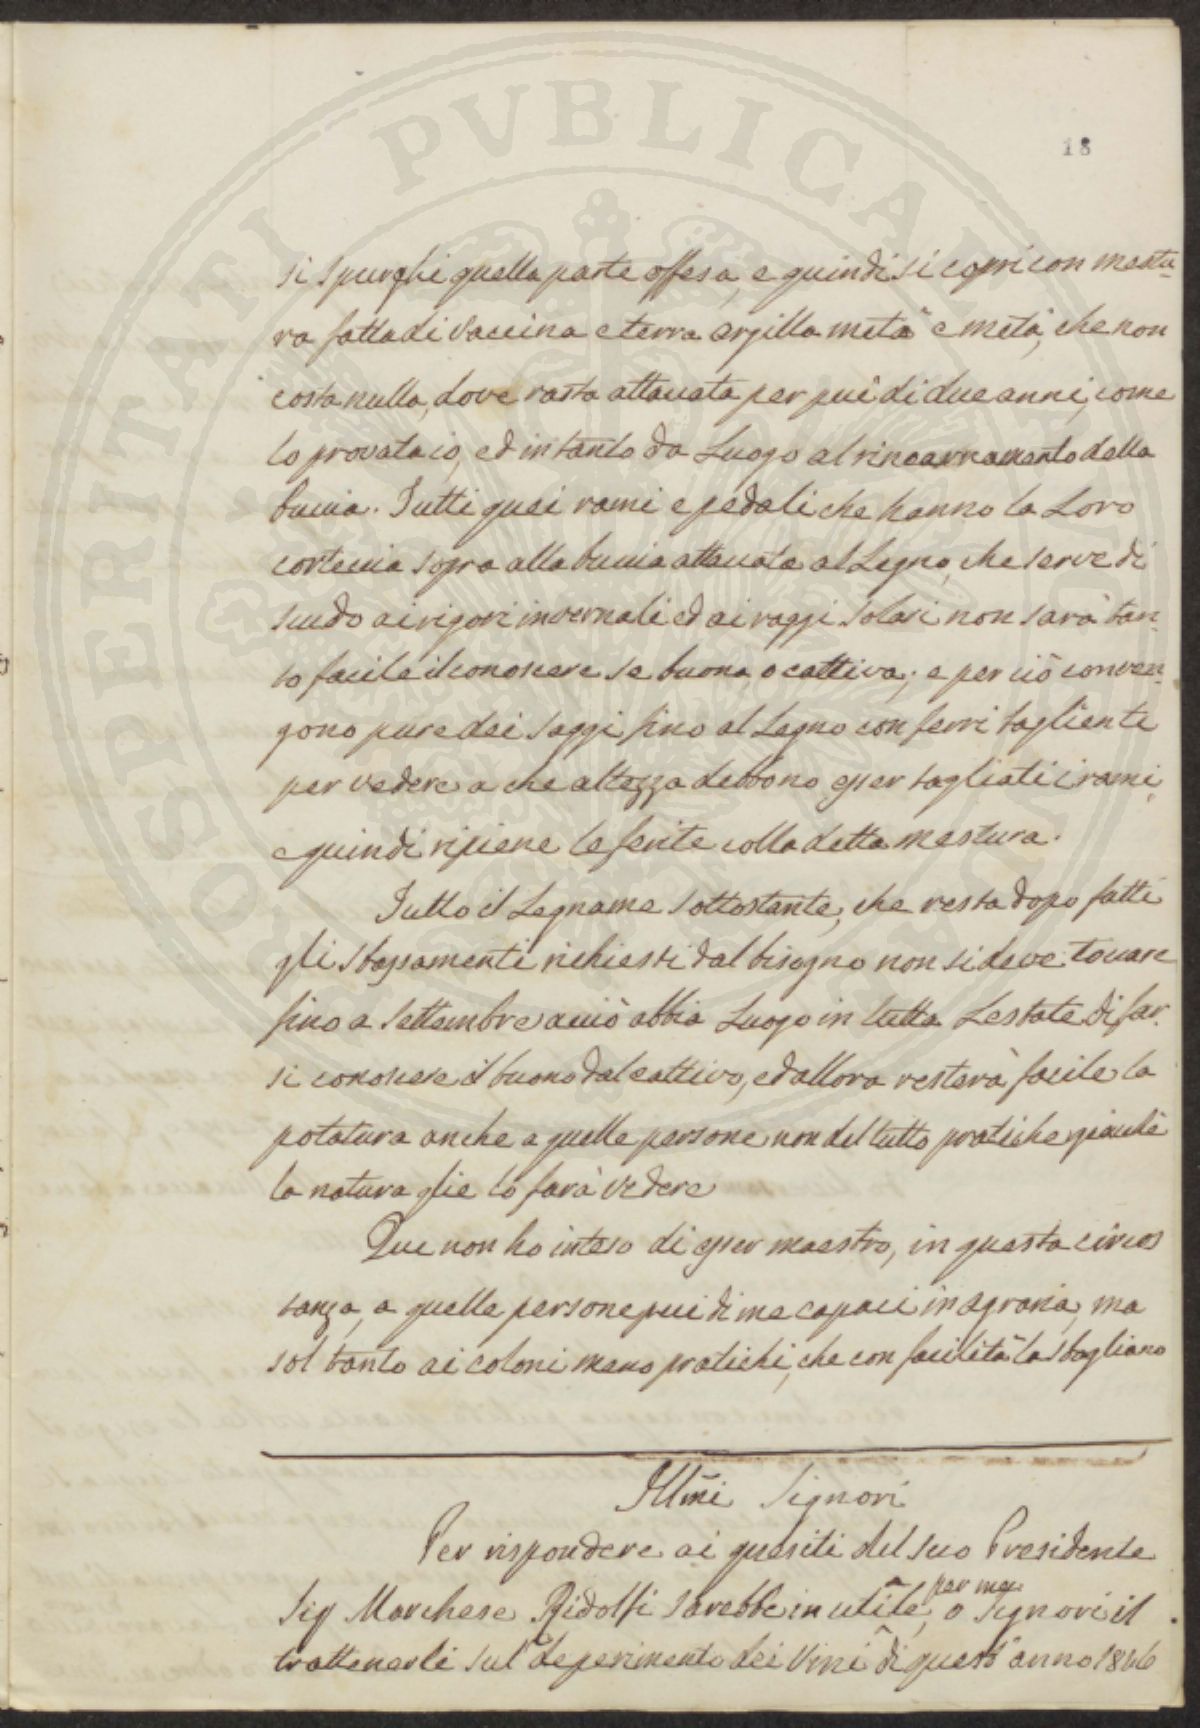 PROSPERITATI PVBLICAE
18
si spurghi quella parte offesa, e quindi si copri con mestu-
ra fatta di Vaccina e terra argilla metà e metà, che non
costa nulla, dove rasta attacata per pui di due anni, come
lo provata io, ed intanto da Luogo al rincarnamento della
bucia. Tutti quei rami e pedali che hanno la Loro
cortecia sopra alla bucia attacata al Legno, che serve di
scudo ai rigori invernali ed ai raggi Solari non sarà tan-
to facile il conoscere se buona, o cattiva; e per ciò conven-
gono pure dei saggi fino al Legno con ferri tagliente
per vedere a che altezza debbono esser tagliati i rami,
e quindi ripiene le ferite colla detta mestura.
Tutto il Legname Sottostante, che resta dopo fatti
gli sbassamenti richiesti dal bisogno non si deve tocare
fino a Settembre acciò abbia Luogo in tutta Lestate di far-
si conoscere il buono dal cattivo, ed allora resterà facile la
potatura anche a quelle persone non del tutto pratiche giachè
la natura glie lo farà vedere
Que non ho inteso di esser maestro, in questa circos
tanza, a quelle persone pui di me capaci in agraria, ma
sol tanto ai coloni meno pratichi, che con facilità la sbagliano
Illmi Signori
Per rispondere ai quesiti del suo Presidente
Sig Marchese Ridolfi sarebbe inutile, per me o Signori il
trattenerli sul deperimento dei Vini di quest'anno 1866